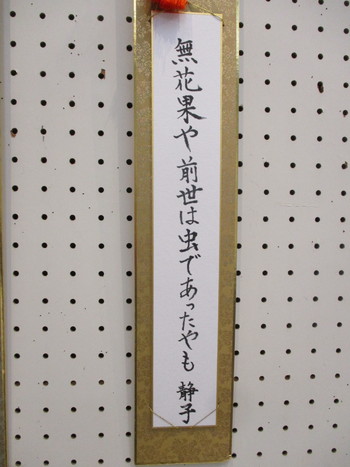 無花果や前世は虫であったやも 静子